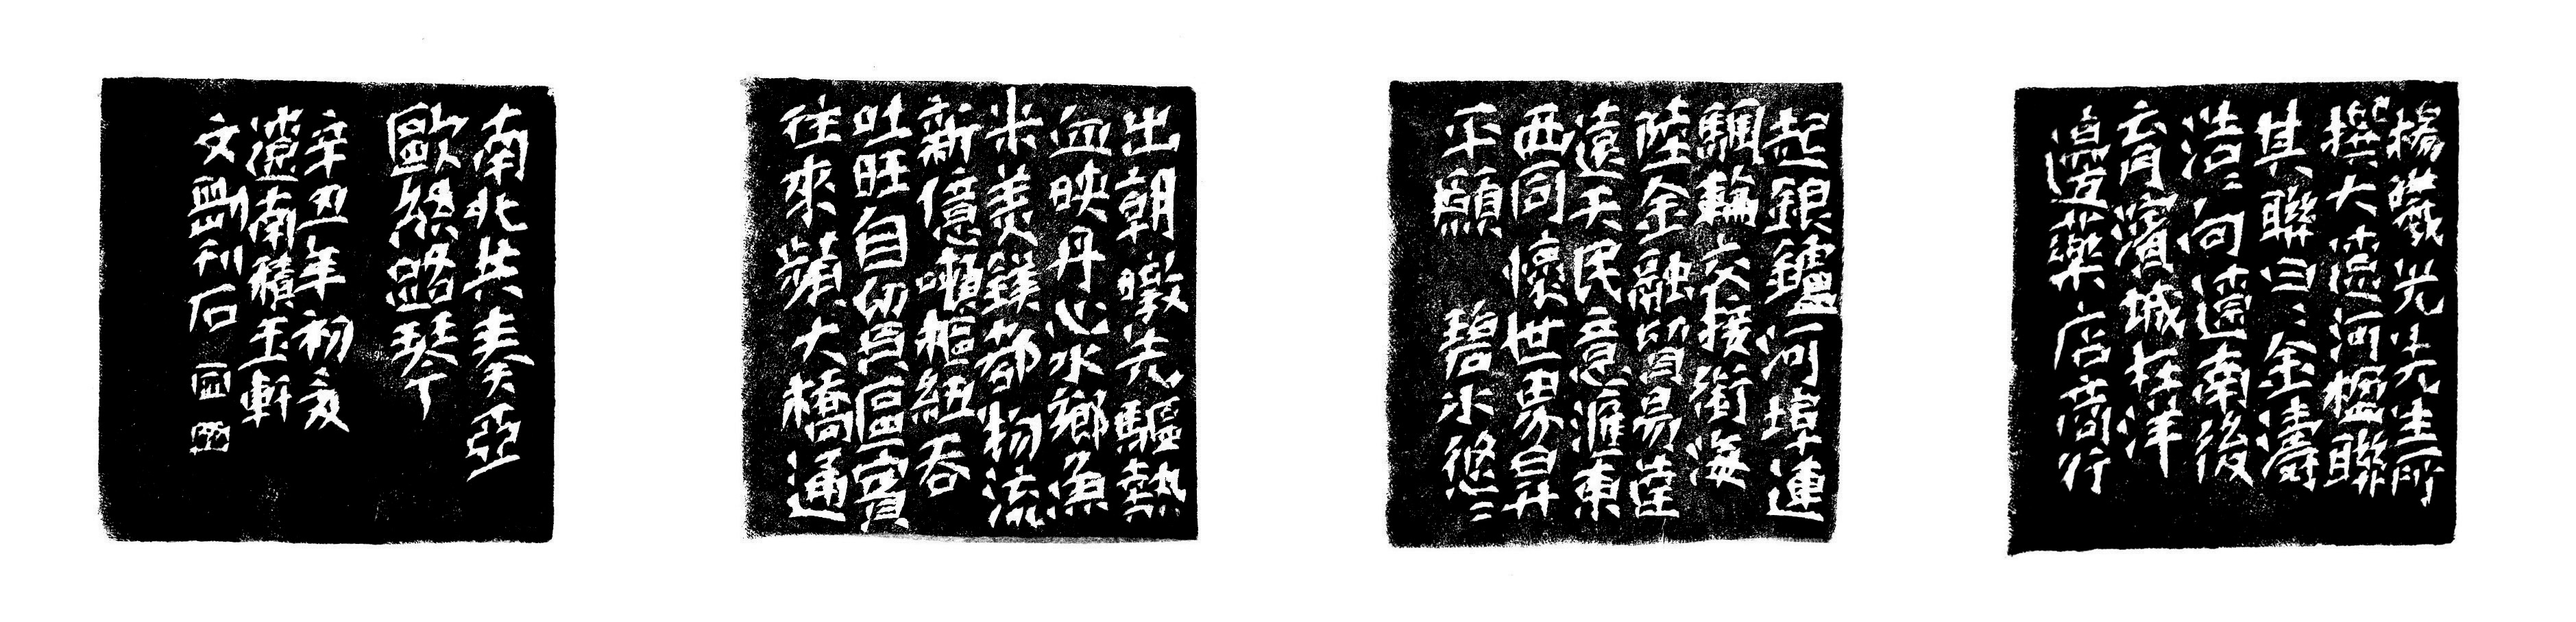 楊曦光先生所
撰大湾河楹聯
其聯曰：金濤
浩：向湾南後
育濱城枉洋
邊藥店商行
起銀鑪河埠連
颿輪交接衢海
陸金融貿易萱
遠天民意滙東
西同懷世界昇
平願 碧水悠：
出朝暾先驅熱
血映丹心水鄉魚
米美鎂都物流
新億噸樞紐吞
吐旺自貿區賓
往來蘋大橋通
南北共奏亞
歐絲路琴亇
辛丑年初夏
湾南積玉軒
文剛刊石